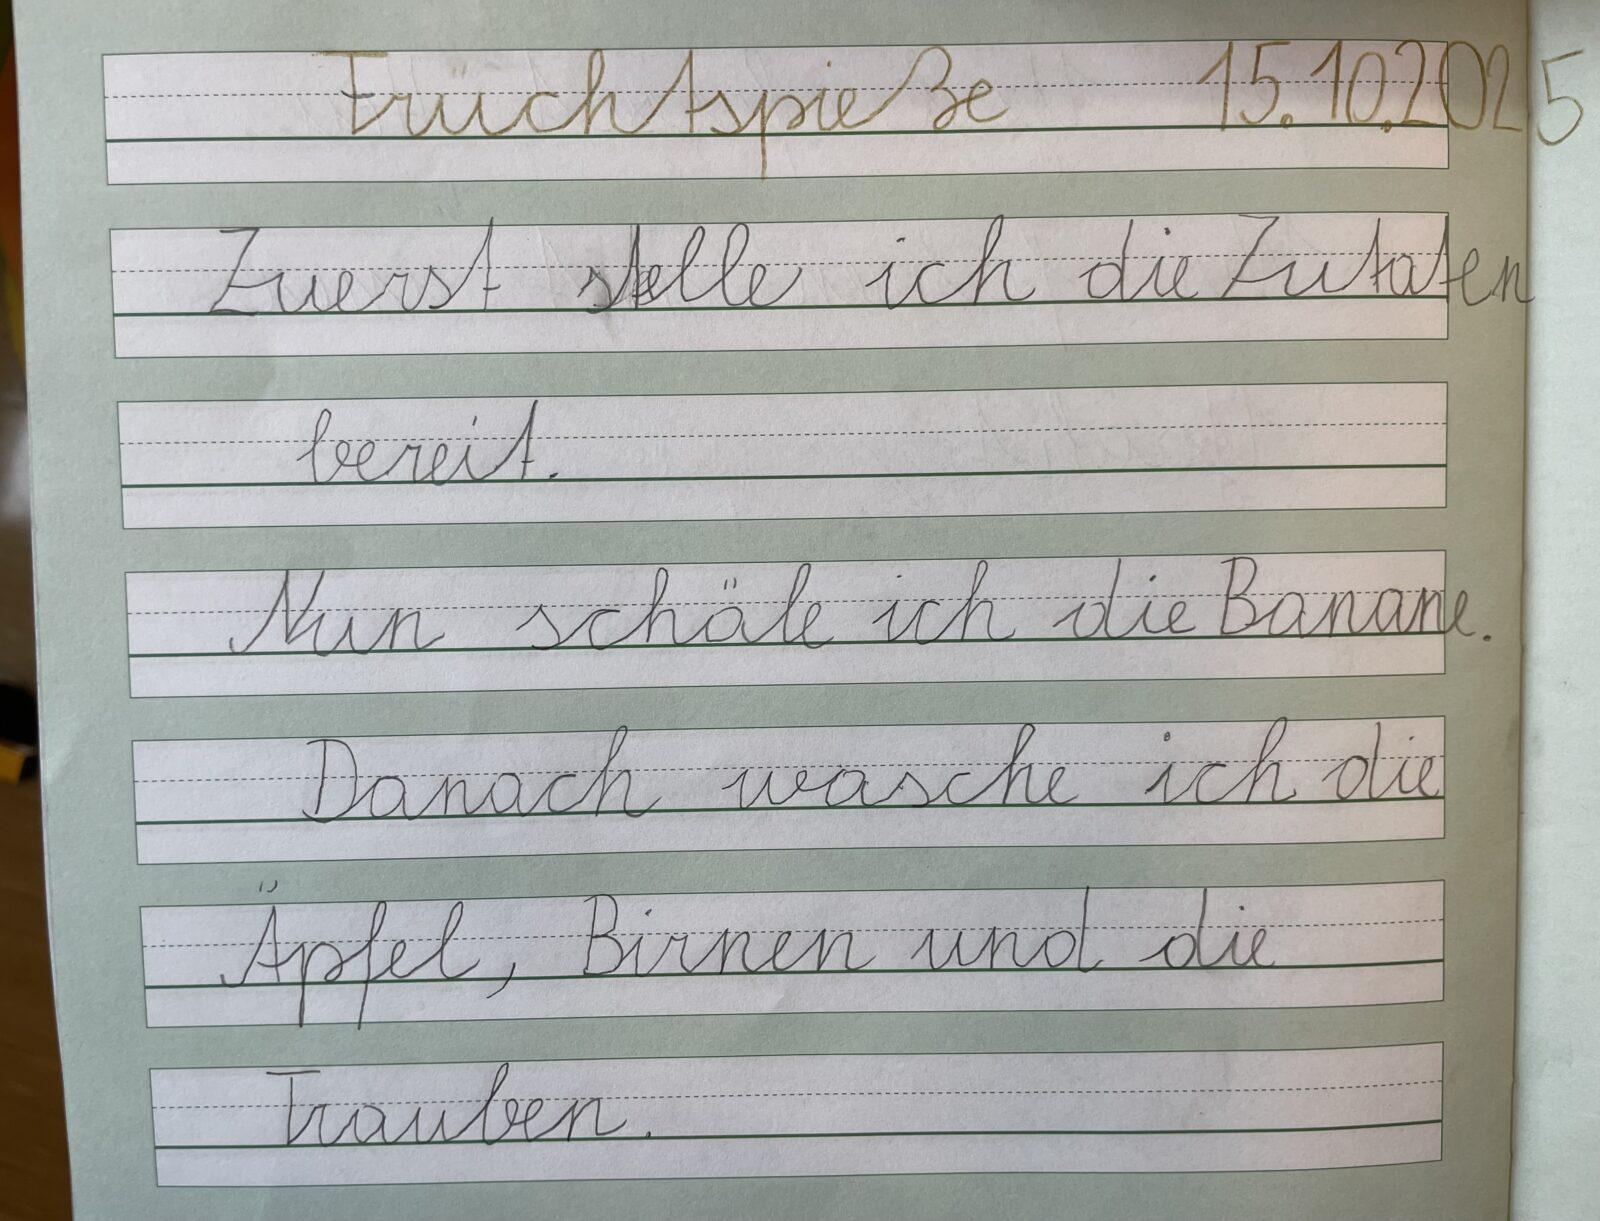 Früchtspieße 15.10.2025
Zuerst stelle ich die Zutaten
bereit.
Nun schäle ich die Banane.
Danach wasche ich die
Äpfel, Birnen und die
Trauben.